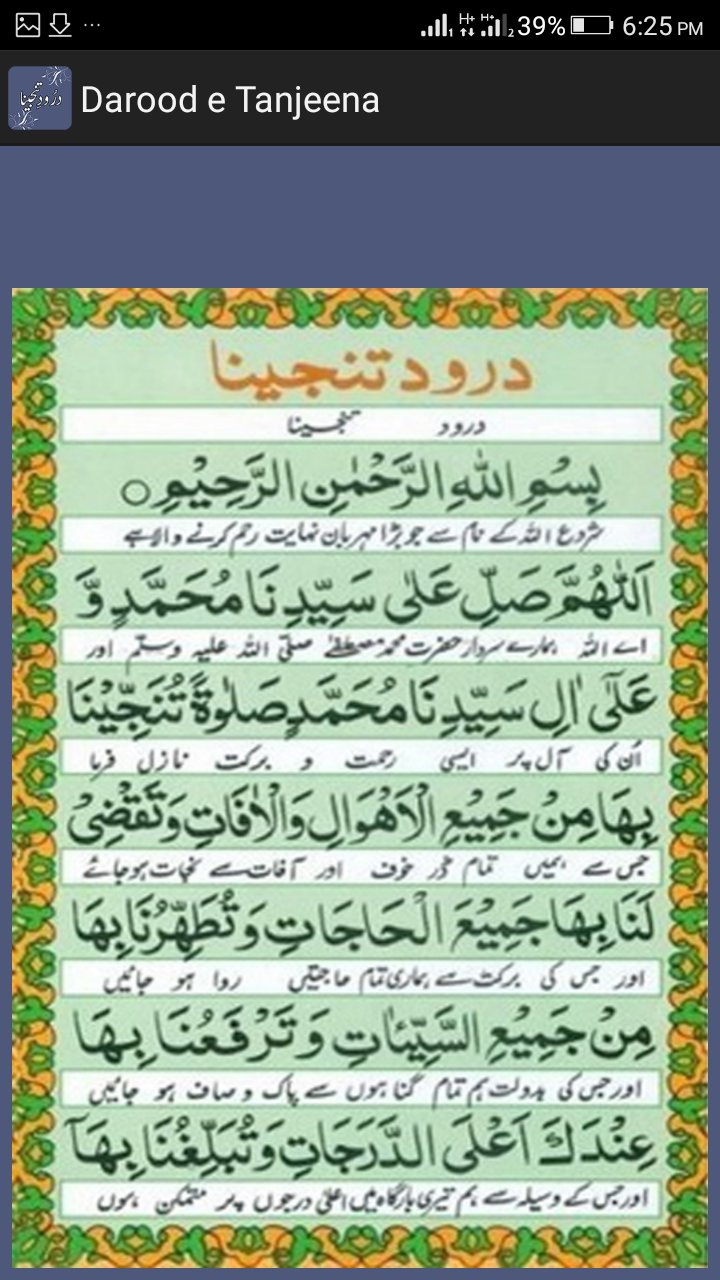 39% 6:25 PM
درودِ تنجینا
Darood e Tanjeena
درود تنجینا
درود تنجینا
بِسْمِ اللّٰهِ الرَّحْمٰنِ الرَّحِيْمِ ○
شروع اللہ کے نام سے جو بڑا مہربان نہایت رحم کرنے والا ہے
اَللّٰهُمَّ صَلِّ عَلٰى سَيِّدِنَا مُحَمَّدٍ وَّ
اے اللہ ہمارے سردار حضرت محمد مصطفےٰ صلّی اللہ علیہ وسلّم اور
عَلٰٓى اٰلِ سَيِّدِنَا مُحَمَّدٍ صَلٰوةً تُنَجِّيْنَا
اُن کی آل پر ایسی رحمت و برکت نازل فرما
بِهَا مِنْ جَمِيْعِ الْاَهْوَالِ وَالْاٰفَاتِ وَتَقْضِىْ
جس سے ہمیں تمام ڈر خوف اور آفات سے نجات ہو جائے
لَنَا بِهَا جَمِيْعَ الْحَاجَاتِ وَتُطَهِّرُنَا بِهَا
اور جس کی برکت سے ہماری تمام حاجتیں روا ہو جائیں
مِنْ جَمِيْعِ السَّيِّئٰاتِ وَتَرْفَعُنَا بِهَا
اور جس کی بدولت ہم تمام گناہوں سے پاک و صاف ہو جائیں
عِنْدَكَ اَعْلَى الدَّرَجَاتِ وَتُبَلِّغُنَا بِهَآ
اور جس کے وسیلہ سے ہم تیری بارگاہ میں اعلیٰ درجوں پر متمکن ہوں